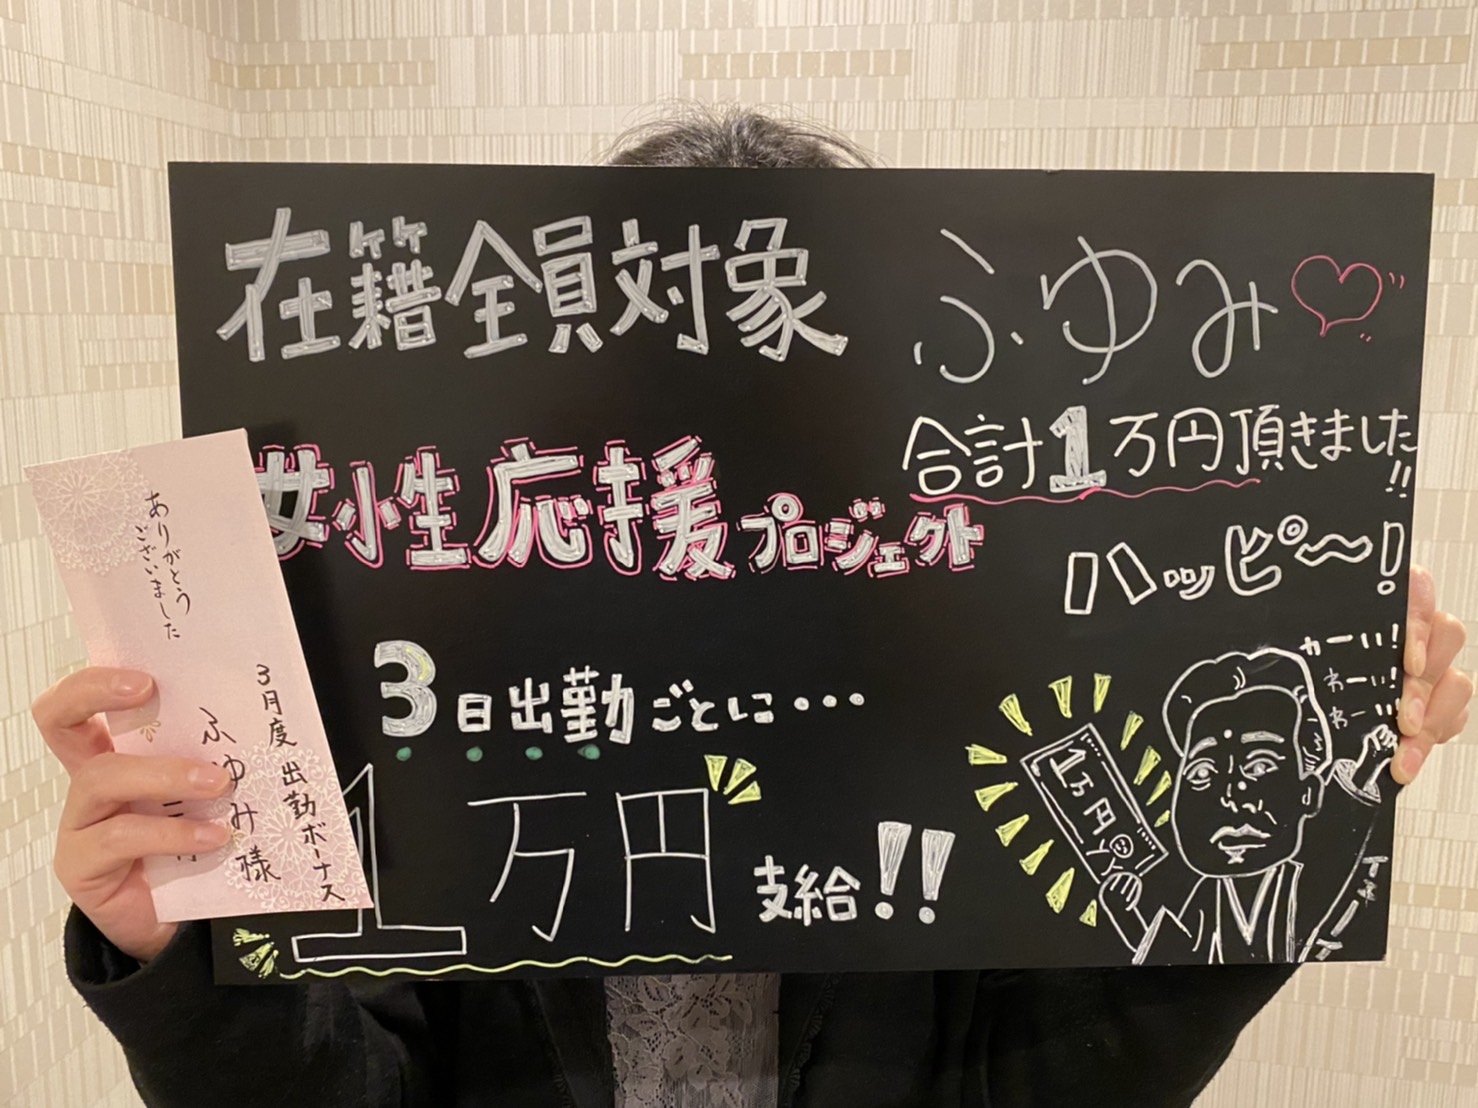 在籍全員対象
ふゆみ♡
合計1万円頂きました!!
女性応援プロジェクト
ハッピ〜!
3日出勤ごとに・・・
1万円
支給!!
わーい!
わーい!
わー
1万円
ありがとう
ございました
3月度 出勤ボーナス
ふゆみ様